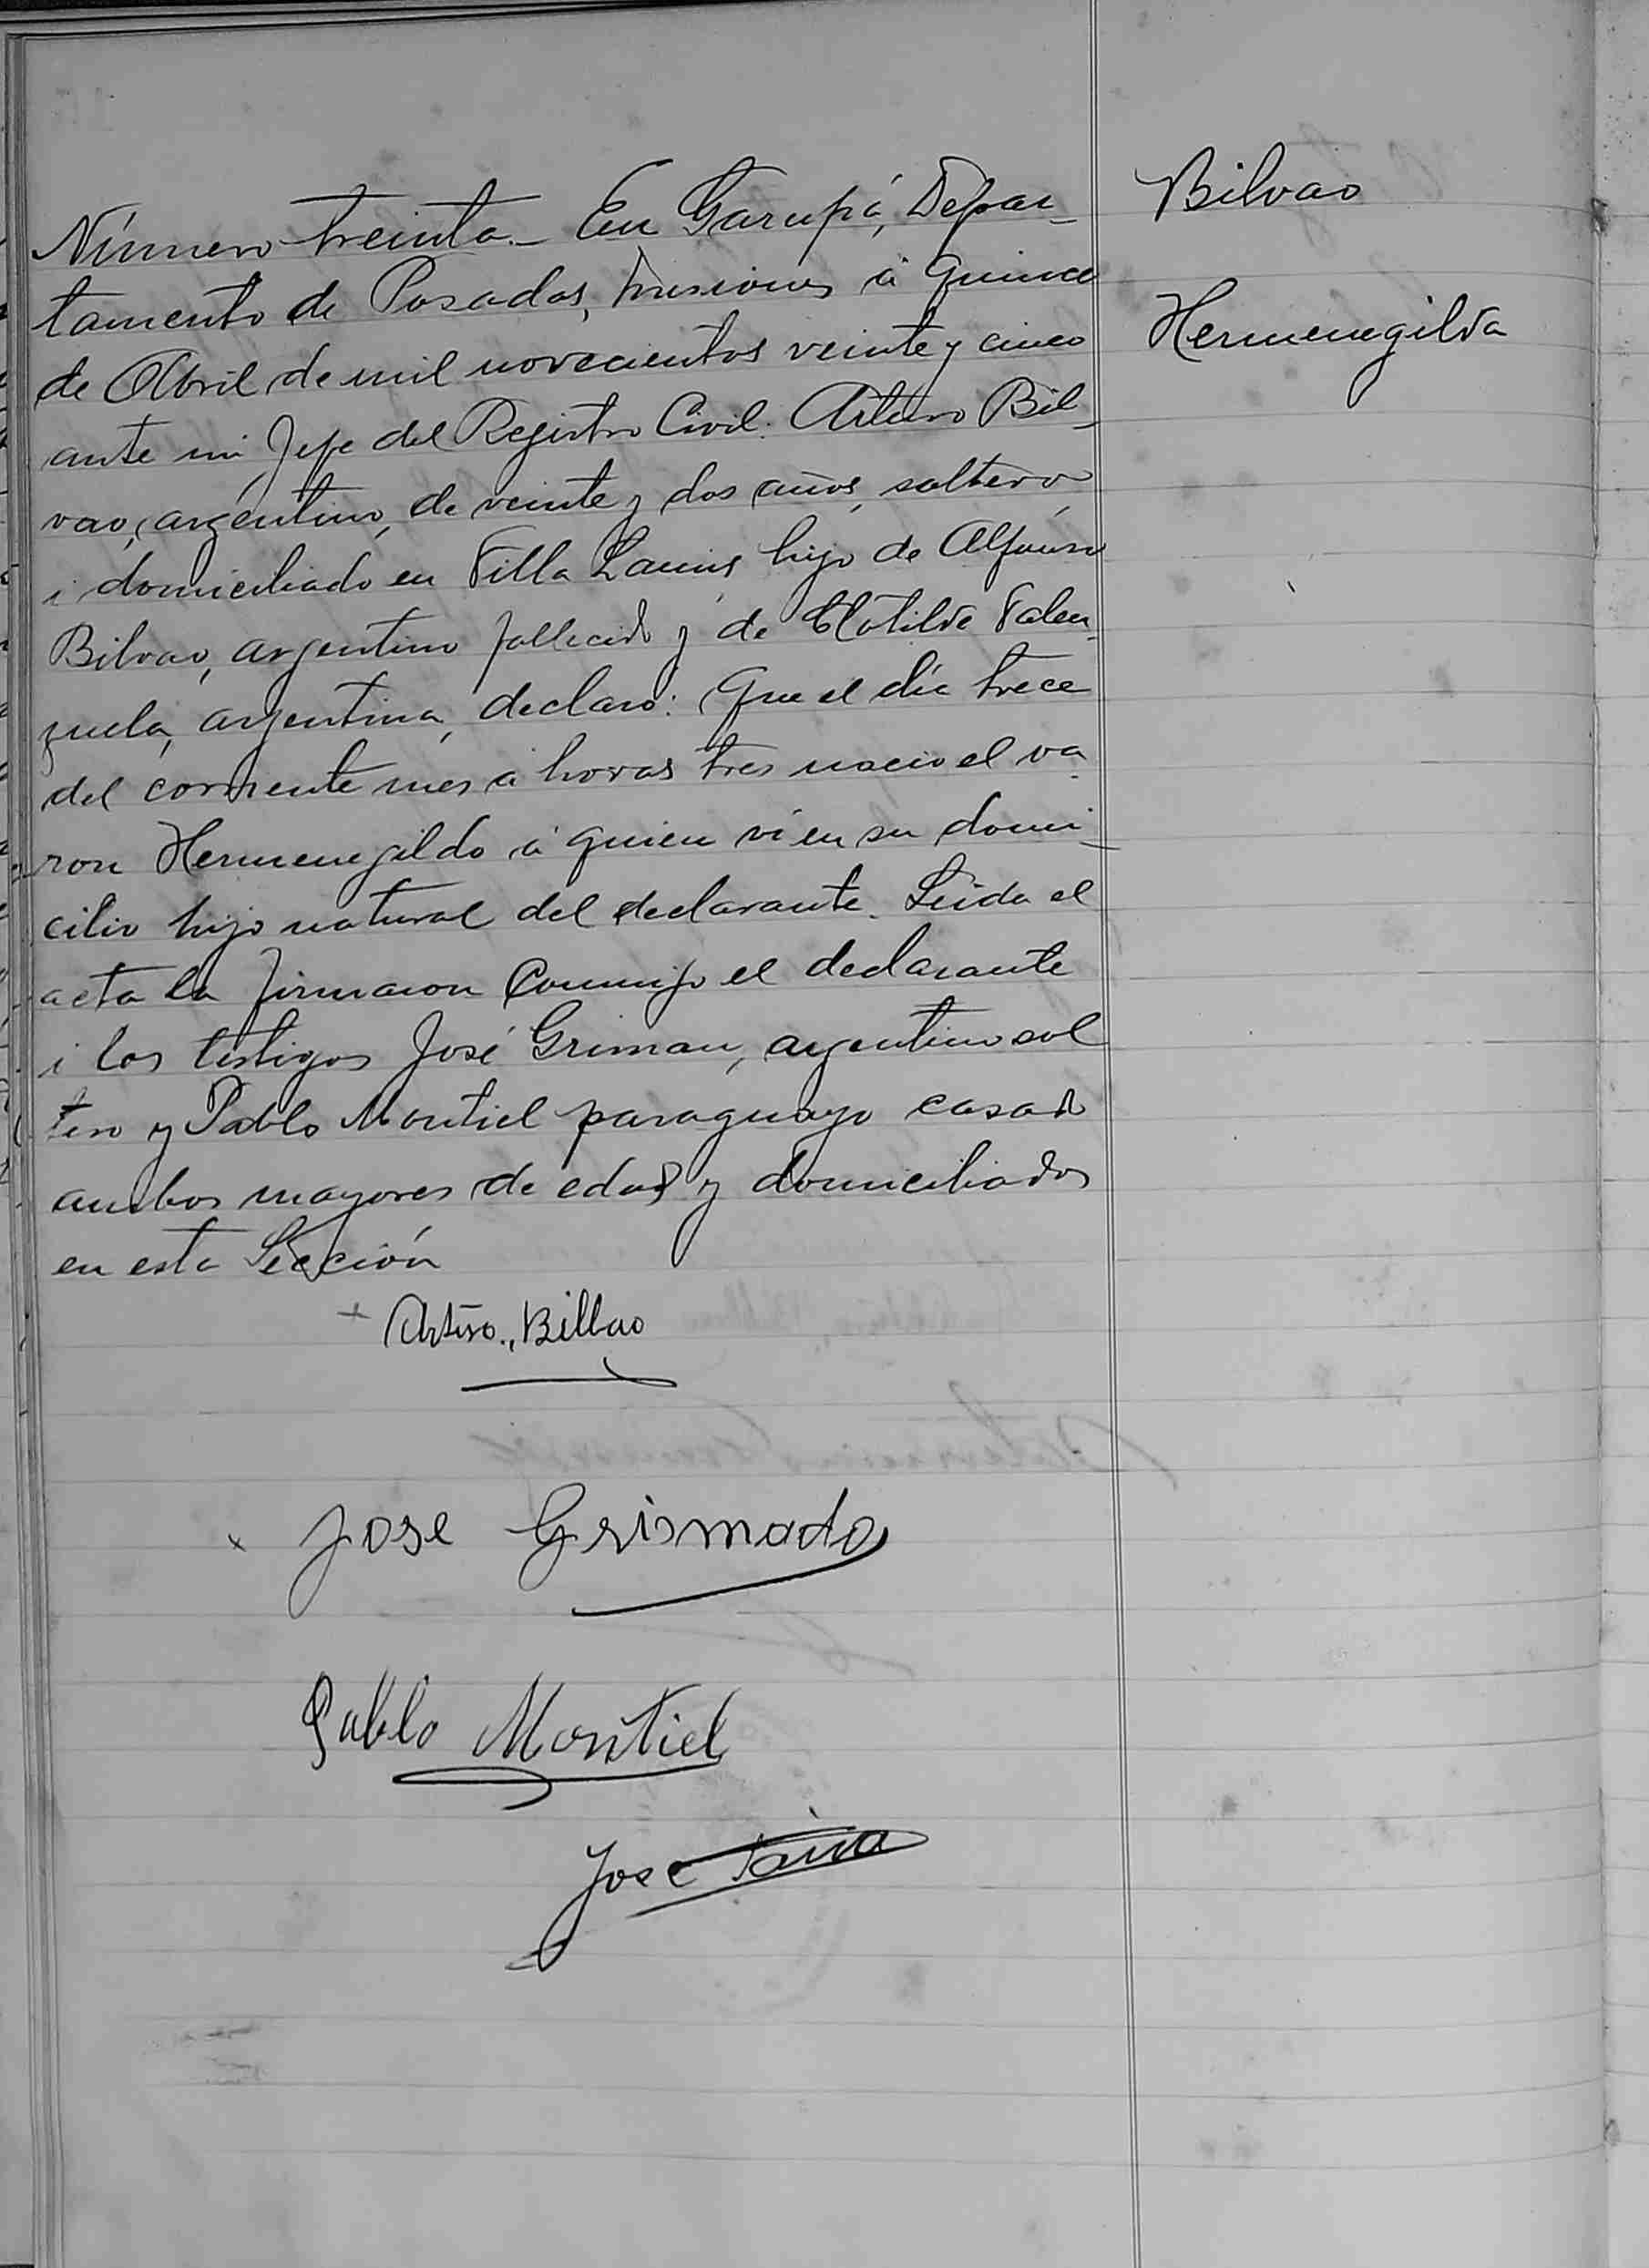 Bilvao
Hermenegilda
Número treinta. En Garupá, Depar-
tamento de Posadas, Misiones á quince
de Abril de mil novecientos veinte y cinco
ante mi Jefe del Registro Civil. Arturo Bil-
vao, argentino, de veinte y dos años, soltero,
i domiciliado en Villa Lanus, hijo de Alfonso
Bilvao, argentino fallecido y de Clotilde Valen-
zuela, argentina, declaró: Que el día trece
del corriente mes á horas tres nació el va-
ron Hermenegildo á quien ví en su domi-
cilio hijo natural del declarante. Leida el
acta la firmaron conmigo el declarante
i los testigos José Griman, argentino sol
tero y Pablo Montiel paraguayo casado
ambos mayores de edad y domiciliados
en esta Sección
+ Arturo., Bilbao
x Jose Grismado
Pablo Montiel
Jose